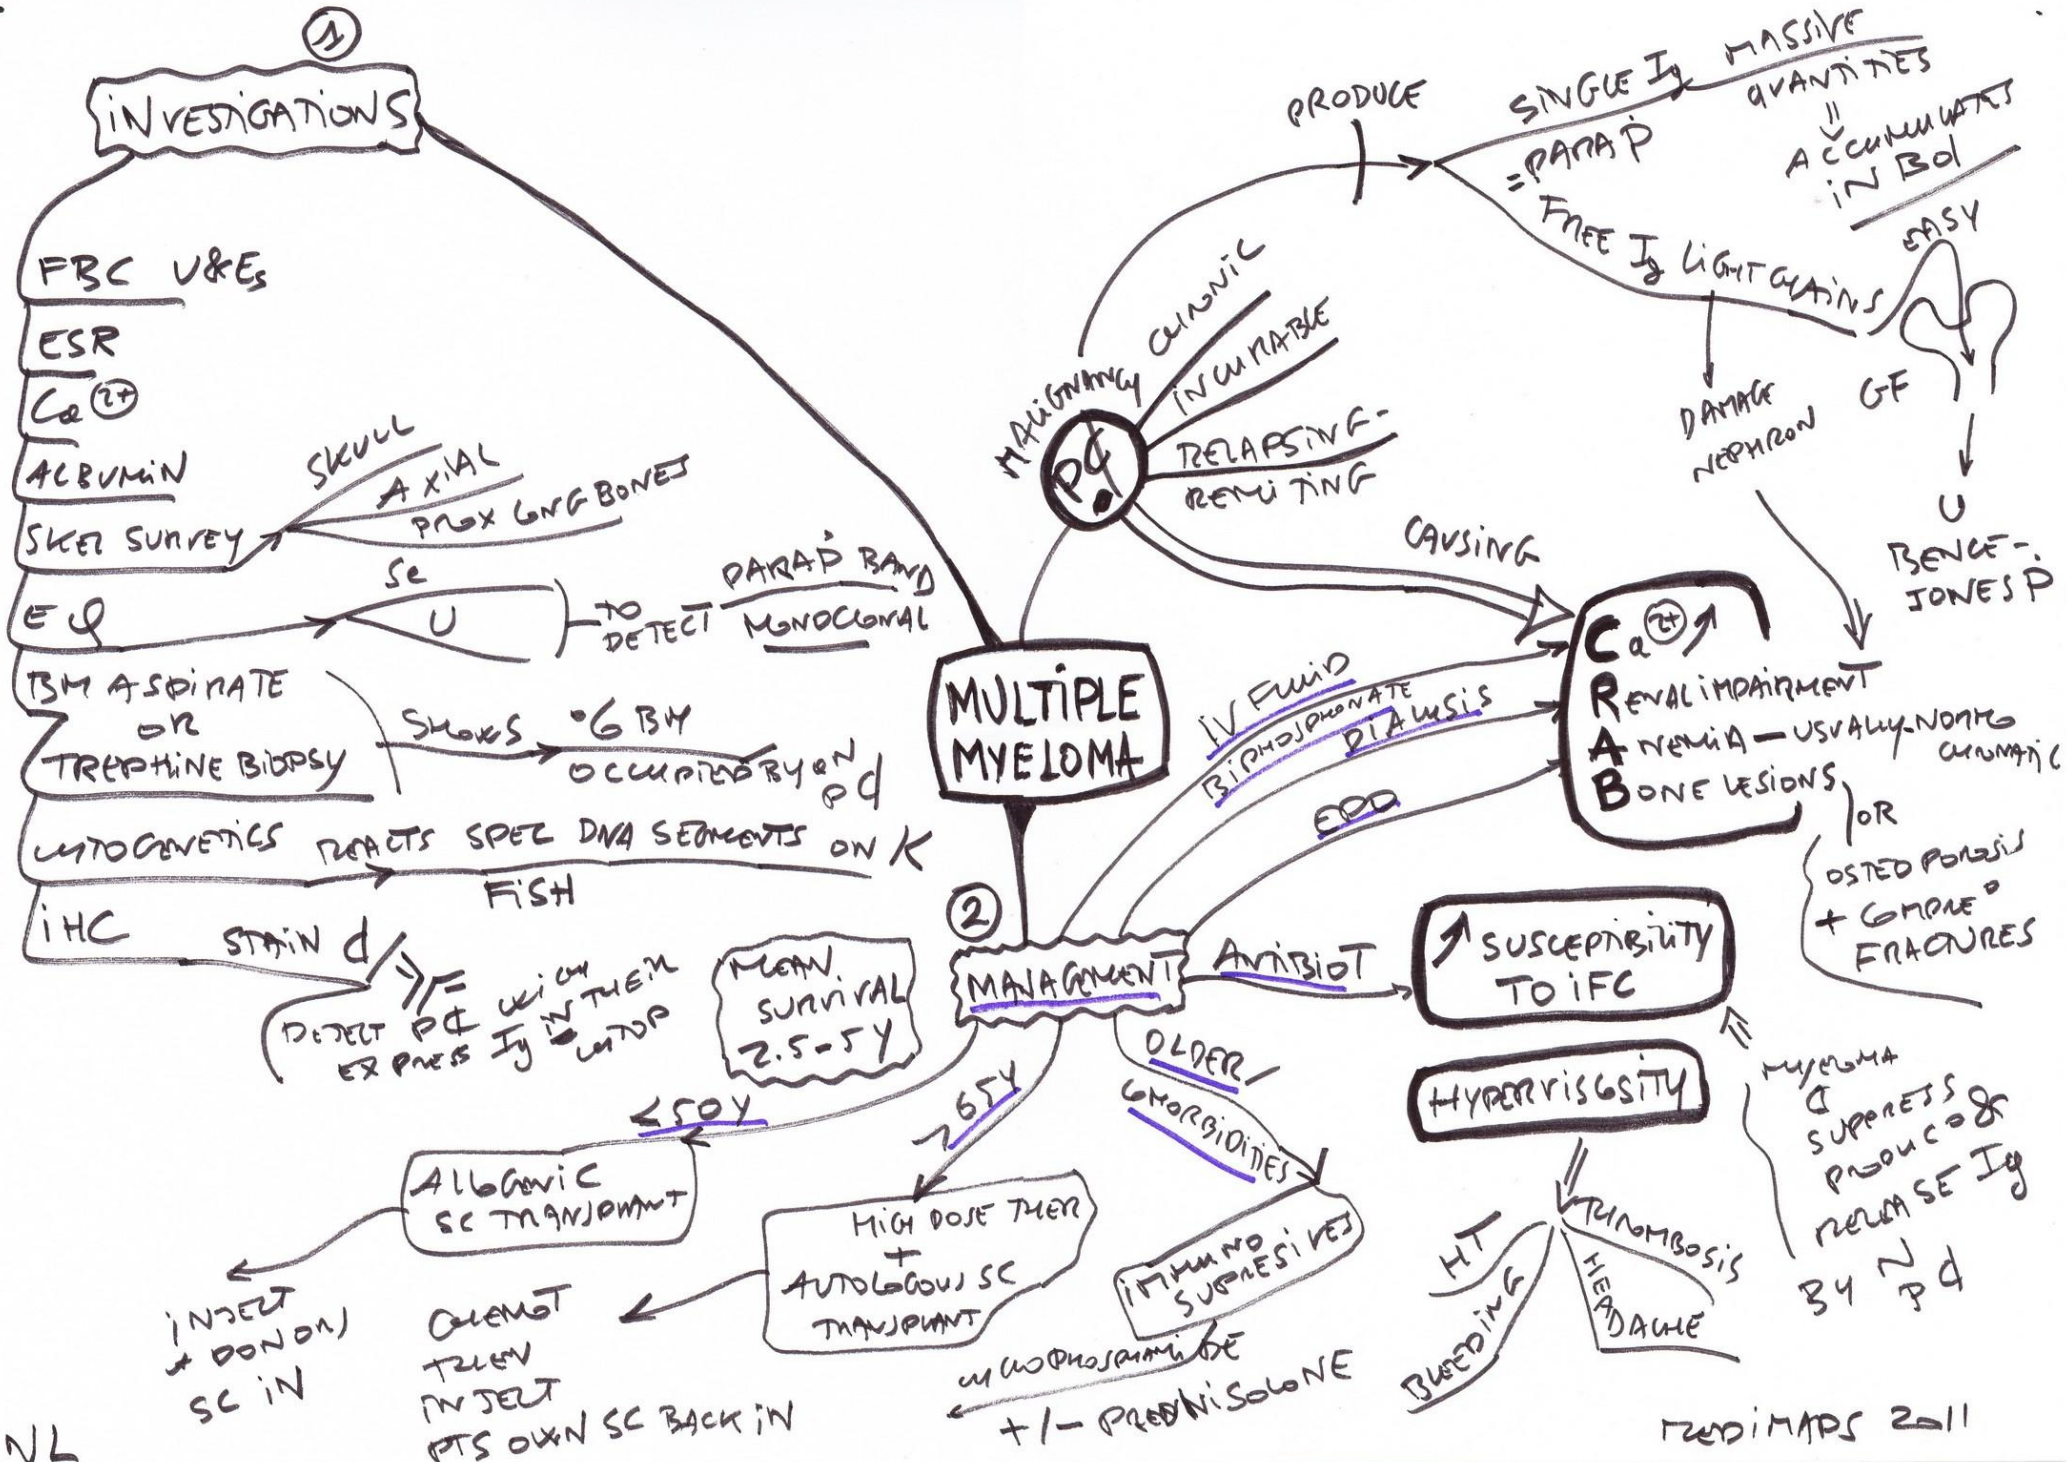 1
iNVESTiGATiONS
FBC U&Es
ESR
Ca 2+
ALBUMiN
SKEL SURVEY
SKULL
AXiAL
PROX LONG BONES
E φ
Se
U
TO
DETECT
PARAP BAND
MONOCLONAL
BM ASPiRATE
OR
TREPHiNE BiOPSY
SHOWS
% BM
OCCUPiED BY
CYTOGENETiCS
REACTS SPEC DNA SEGMENTS ON K
FiSH
iHC
STAiN
DETECT PC WiCH
EXPRESS Ig iN THEiR
CYTOP
MEAN
SURViVAL
2.5-5Y
MULTiPLE
MYELOMA
MALiGNANCY
PC
CHRONiC
iNCURABLE
RELAPSiNG-
REMiTiNG
PRODUCE
SiNGLE Ig
= PARAP
MASSiVE
QUANTiTiES
ACCUMULATES
iN Bd
FREE Ig LiGHT CHAiNS
EASY
GF
U
BENCE-
JONES P
DAMAGE
NEPHRON
CAUSiNG
Ca 2+
RENAL iMPAiRMENT
ANEMiA - USUALLY-NORMO
CHROMATiC
BONE LESiONS
OR
OSTEOPOROSiS
+ COMPRE°
FRACTURES
iV FLUiD
BiPHOSPHONATE
DiALYSiS
EPO
2
MANAGEMENT
ANTiBiOT
SUSCEPTiBiLiTY
TO iFC
MYELOMA
C
SUPPRESS
PRODUC° &
RELEASE Ig
BY N
PC
HYPERViSCOSiTY
HT
BLEEDiNG
HEADACHE
THROMBOSiS
<50Y
ALLOGENiC
SC TRANSPLANT
iNJECT
DONORS
SC iN
>65Y
HiGH DOSE THER
+
AUTOLOGOUS SC
TRANSPLANT
CHEMOT
THEN
iNJECT
PTS OWN SC BACK iN
OLDER/
COMORBiDiTiES
iMMUNO
SUPRESiVES
CYCLOPHOSPHAMiDE
+/- PREDNiSOLONE
MEDiMAPS 2011
NL